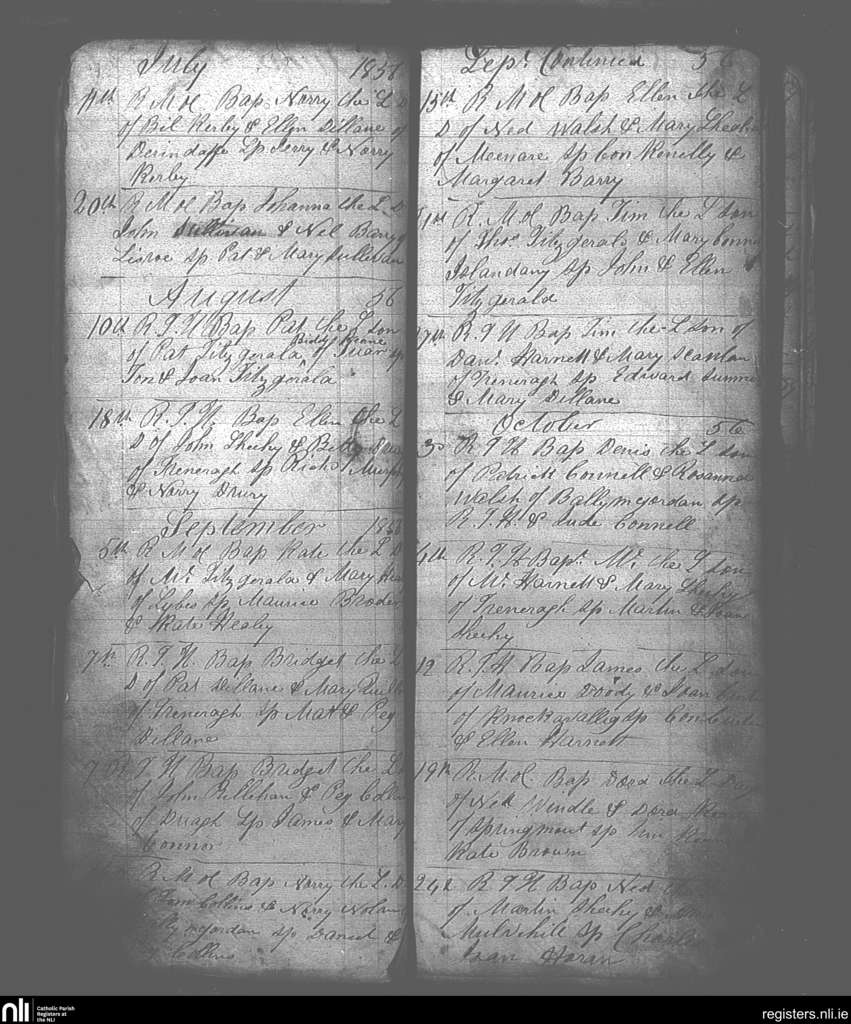 July 1856
11th R M ol Bap Norry the L D
of Bil Kerby & Ellen Dillane of
Derindaffe Sp Jerry & Norry
Kerby
20th R M ol Bap Johanna the L D
John Sullivan & Nel Barry
Lisroe Sp Pat & Mary Sullivan
August 56
10th R T H Bap Pat the L son
of Pat Fitzgerald of
Bidy
& Joan Fitzgerald
18th R. T. H. Bap Ellen the L
D of John Sheehy & Betty
of Treneragh Sp Richd Murphy
& Norry Drury
September 1856
5th R M ol Bap Kate the L D
of Mr. Fitzgerald & Mary
of Lybes Sp Maurice Broder
& Kate Healy
7th R. T. H. Bap Bridget the L
D of Pat Dillane & Mary
of Treneragh Sp Mat & Peg
Dillane
7 R T H Bap Bridget the L
of John & Peg
of Duagh Sp James & Mary
Connor
R M ol Bap Norry the L. D
Collins & Norry Nolan
Sp Daniel &
Collins
Sept. Continued 56
15th R M ol Bap Ellen the L
D of Ned Walsh & Mary Sheehy
of Meenare Sp Con Renelly &
Margaret Barry
R. M ol Bap Tim the L son
of Thos Fitzgerald & Mary
Islandany Sp John & Ellen
Fitzgerald
R T H Bap Tim the L son of
Danl. Harnett & Mary Scanlan
of Treneragh Sp Edward
& Mary Dillane
October 56
3d R T H Bap Denis the L son
of Patrick Connell & Rosanna
Walsh of Ballymcjordan Sp
R. T. H. & Jude Connell
R. T. H Bapt. Mr. the L son
of Mr. Harnett & Mary Sheehy
of Treneragh Sp Martin & Joan
Sheehy
12 R. T. H Bap James the L son
of Maurice Woody & Joan
of Knockavallig Sp Con
& Ellen Harnett
19th R. M ol. Bap Dora the L
of Ned Windle & Dora
of Springmount Sp
Kate Brown
24th R T H Bap Ned
of Martin Sheehy &
Mulvihill Sp Charles
Joan Horan
nli
Catholic Parish
Registers at
the NLI
registers.nli.ie